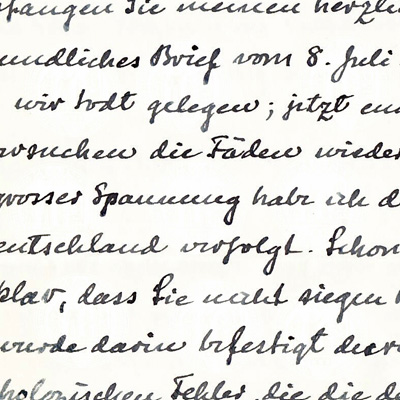 pfangen Sie meinen herzli
undliches Brief vom 8. Juli
wir todt gelegen; jitzt en
rsuchen die Fäden wieder
grosser Spannung habe ich d
eutschland verfolgt. Schon
klar, dass Sie nicht siegen
wurde darin befestigt durc
hologischen Fehler, die die de